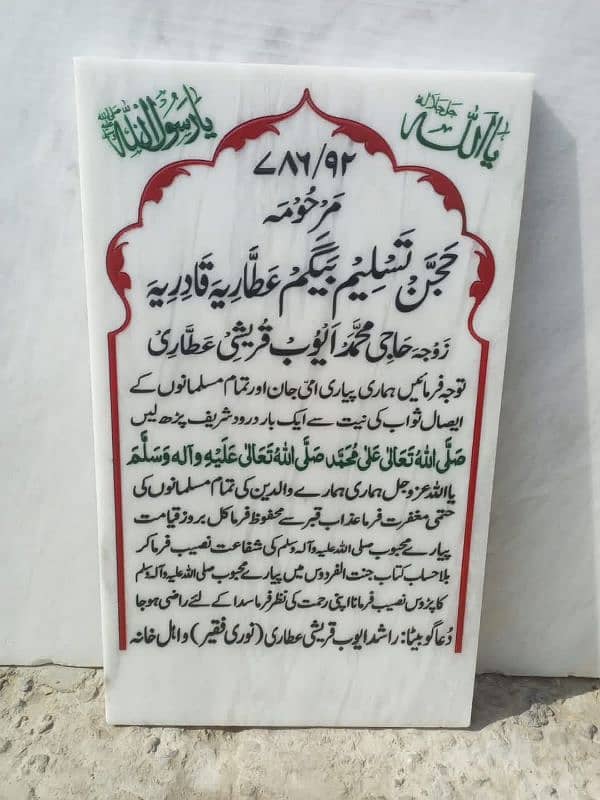 یا اللہ جل جلالہ
یا رسول اللہ ﷺ
۷۸۶/۹۲
مَرحُومَہ
حَجَّن تَسْلِیم بَیگَم عَطَّارِیہ قَادِرِیہ
زَوْجَہ حَاجِی مُحَمَّد اَیُّوب قُرَیْشِی عَطَّارِی
توجہ فرمائیں ہماری پیاری امّی جان اور تمام مسلمانوں کے
ایصال ثواب کی نیت سے ایک بار درود شریف پڑھ لیں
صَلَّی اللہُ تَعَالٰی عَلٰی مُحَمَّد صَلَّی اللہُ تَعَالٰی عَلَیْہِ وَآلِہٖ وَسَلَّم
یااللہ عزوجل ہماری ہمارے والدین کی تمام مسلمانوں کی
حتمی مغفرت فرما عذاب قبر سے محفوظ فرما کل بروز قیامت
پیارے محبوب صلی اللہ علیہ وآلہ وسلم کی شفاعت نصیب فرما کر
بلا حساب کتاب جنت الفردوس میں پیارے محبوب صلی اللہ علیہ وآلہ وسلم
کا پڑوس نصیب فرمانا اپنی رحمت کی نظر فرما سدا کے لئے راضی ہو جا
دُعا گو بیٹا: راشد ایوب قریشی عطاری (نوری فقیر) و اہل خانہ